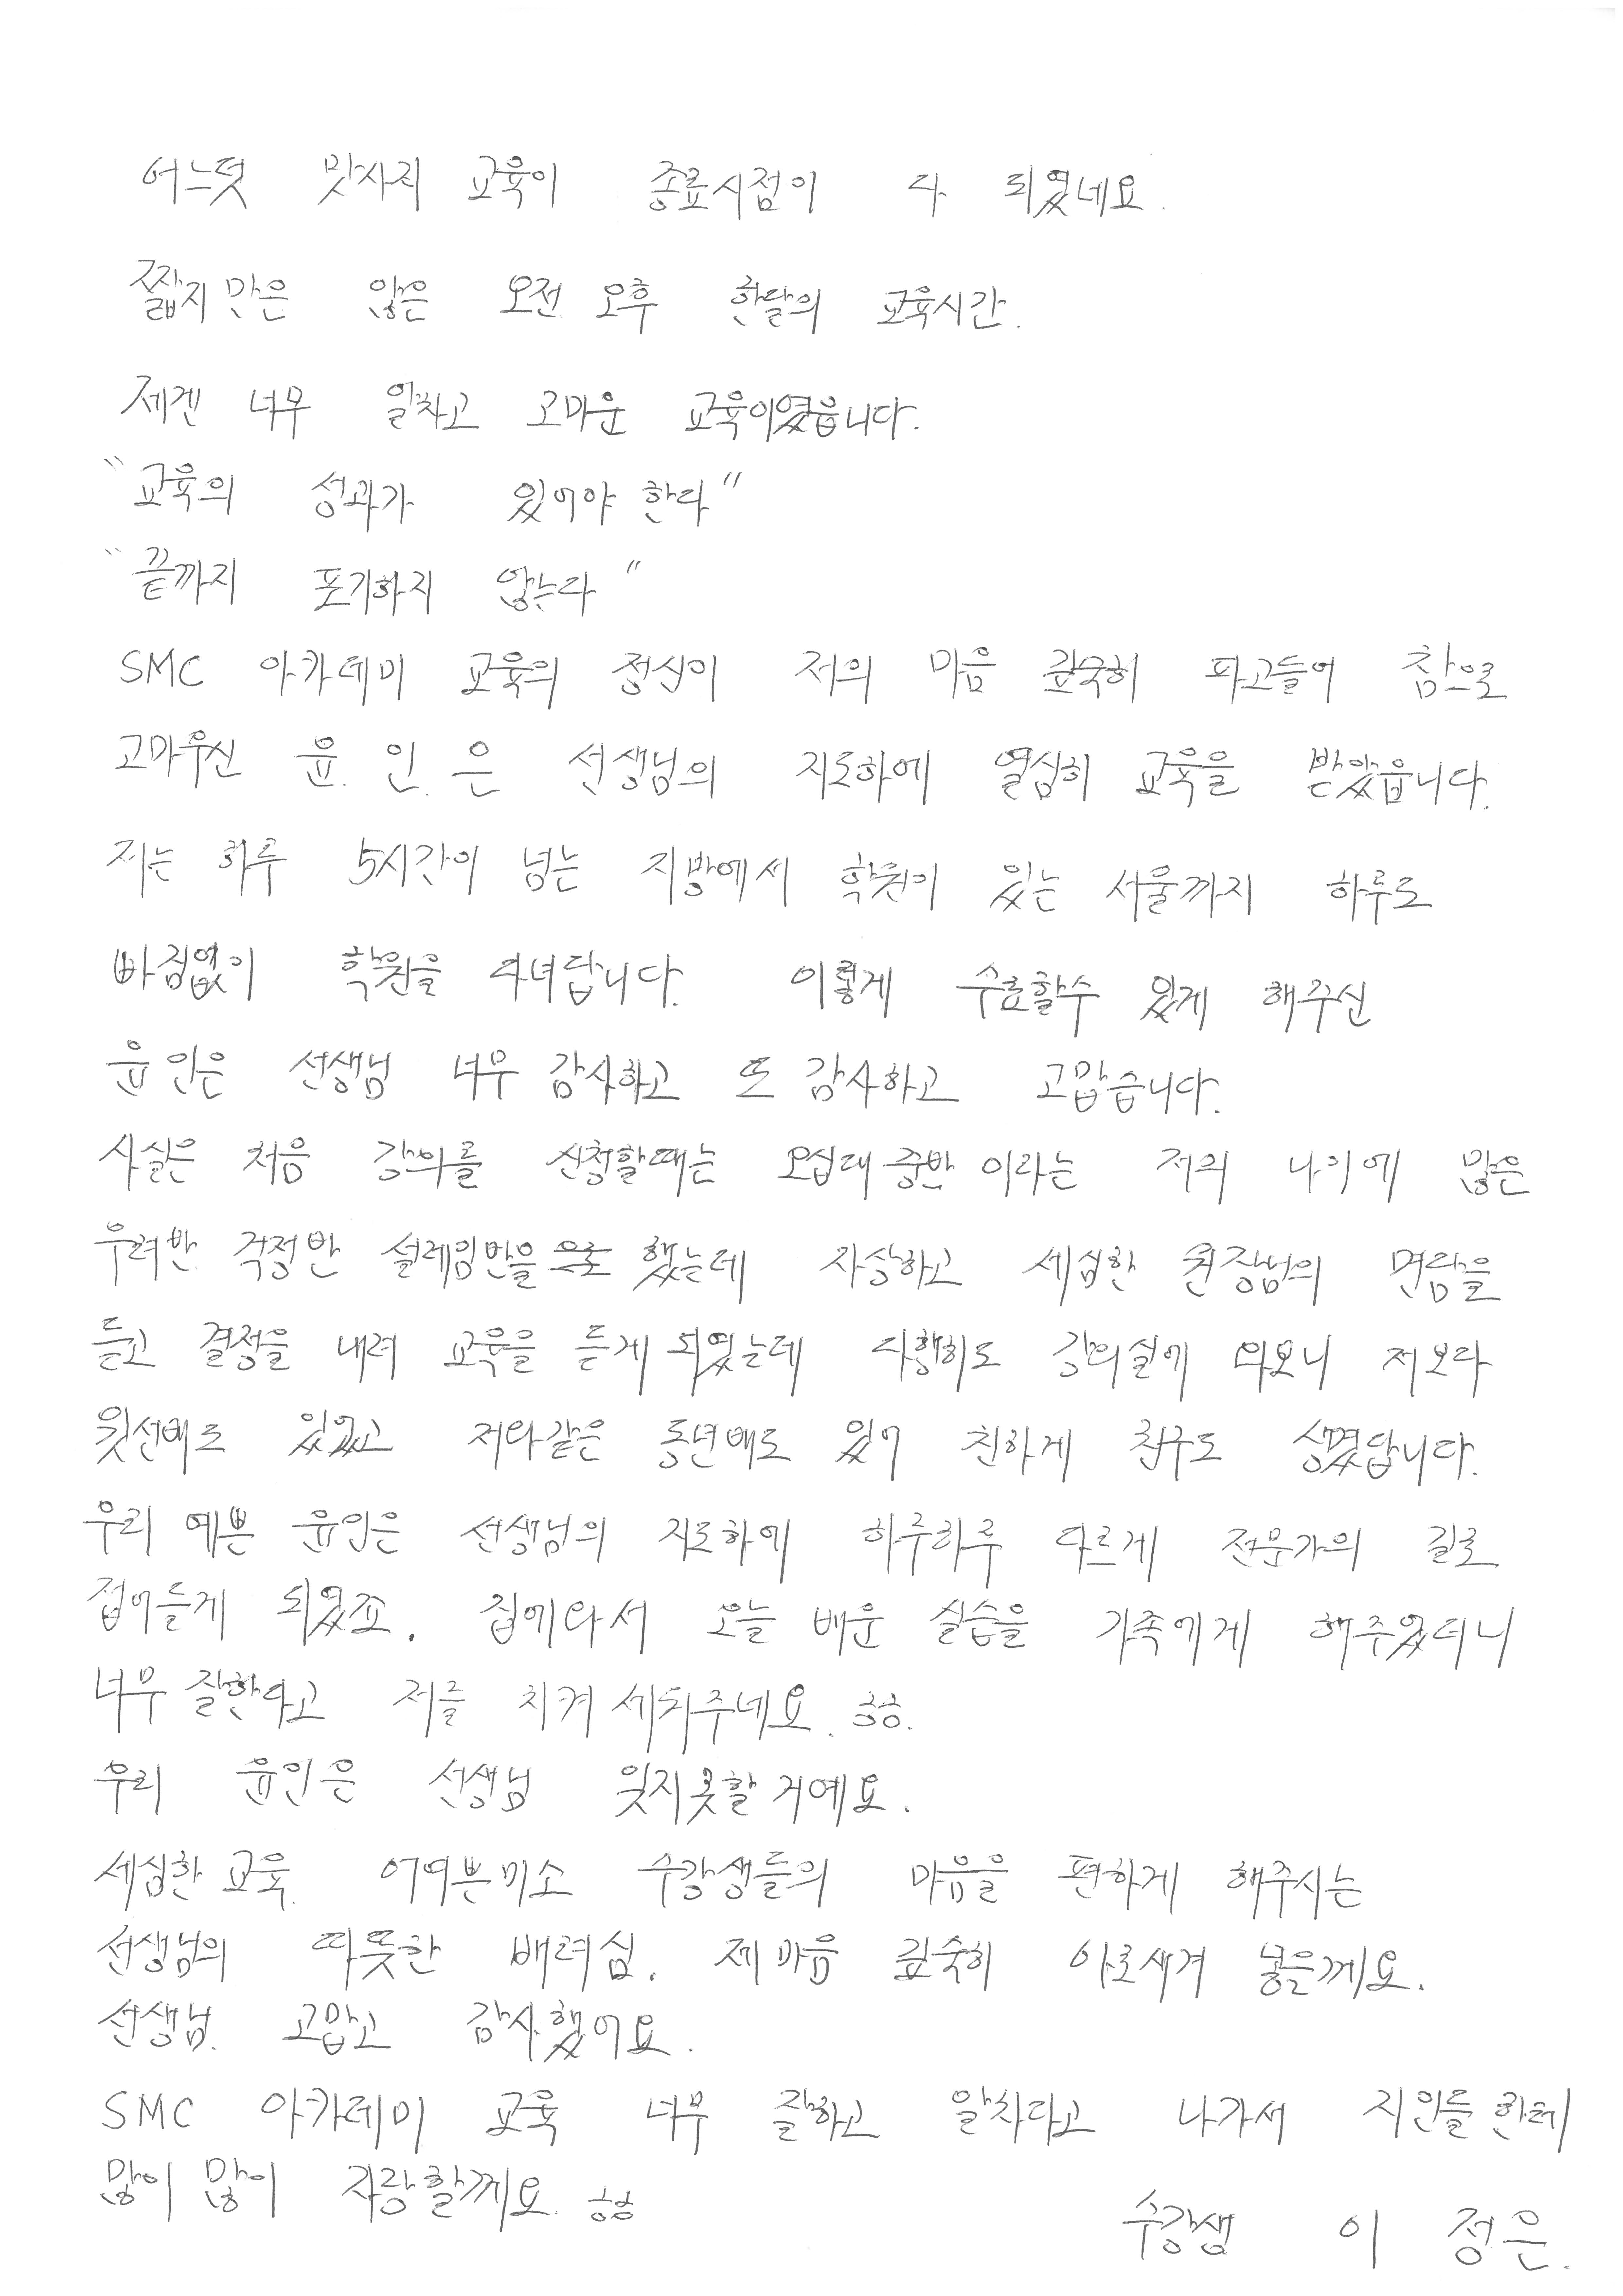 어느덧 맛사지 교육이 종료시점이 다 되였네요.
짧지만은 않은 오전. 오후 한달의 교육시간.
제겐 너무 알차고 고마운 교육이였읍니다.
"교육의 성과가 있어야 한다"
"끝까지 포기하지 않는다"
SMC 아카데미 교육의 정신이 저의 마음 깊숙히 파고들어 참으로
고마우신 윤. 인. 은 선생님의 지도하에 열심히 교육을 받았읍니다.
저는 하루 5시간이 넘는 지방에서 학원이 있는 서울까지 하루도
빠짐없이 학원을 다녀답니다. 이렇게 수료할수 있게 해주신
윤인은 선생님 너무 감사하고 또 감사하고 고맙습니다.
사실은 처음 강의를 신청할때는 오십대 중반 이라는 저의 나이에 많은
우려반. 걱정반 설레임반을 으로 했는데 자상하고 세심한 원장님의 면담을
듣고 결정을 내려 교육을 듣게 되였는데 다행히도 강의실에 와보니 저보다
윗선배도 있었고 저와같은 동년배도 있어 친하게 친구도 생겼답니다.
우리 예쁜 윤인은 선생님의 지도하에 하루하루 다르게 전문가의 길로
접어들게 되였죠. 집에와서 오늘 배운 실습을 가족에게 해주었더니
너무 잘한다고 저를 치켜 세워주네요. ㅎㅎ.
우리 윤인은 선생님 잊지못할 거예요.
세심한 교육. 어여쁜미소 수강생들의 마음을 편하게 해주시는
선생님의 따뜻한 배려심. 제 마음 깊숙히 아로새겨 놓을께요.
선생님. 고맙고 감사했어요.
SMC 아카데미 교육 너무 잘하고 알차다고 나가서 지인들 한테
많이 많이 자랑할께요. ㅎㅎ
수강생 이 정은.